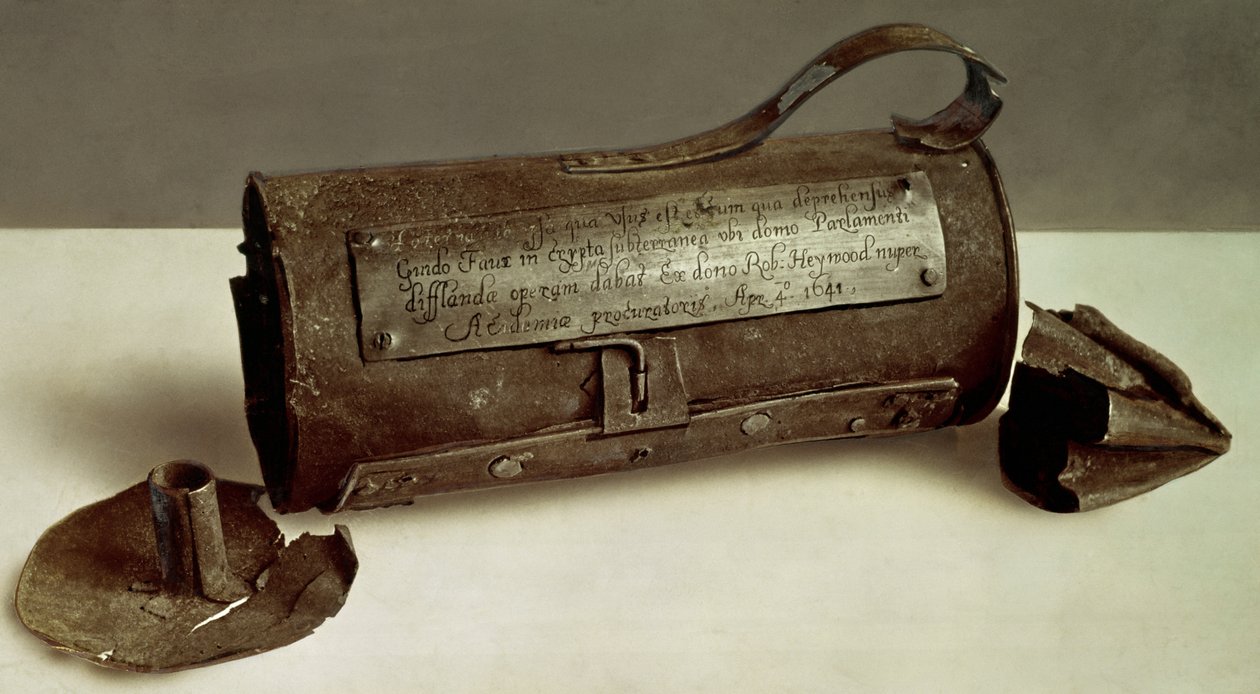 ipsa qua usus est et cum qua deprehensus
Guido Faux in crypta subterranea ubi domo Parlamenti
difflandæ operam dabat Ex dono Rob. Heywood nuper
Academiæ procuratoris, Apr. 4º. 1641.